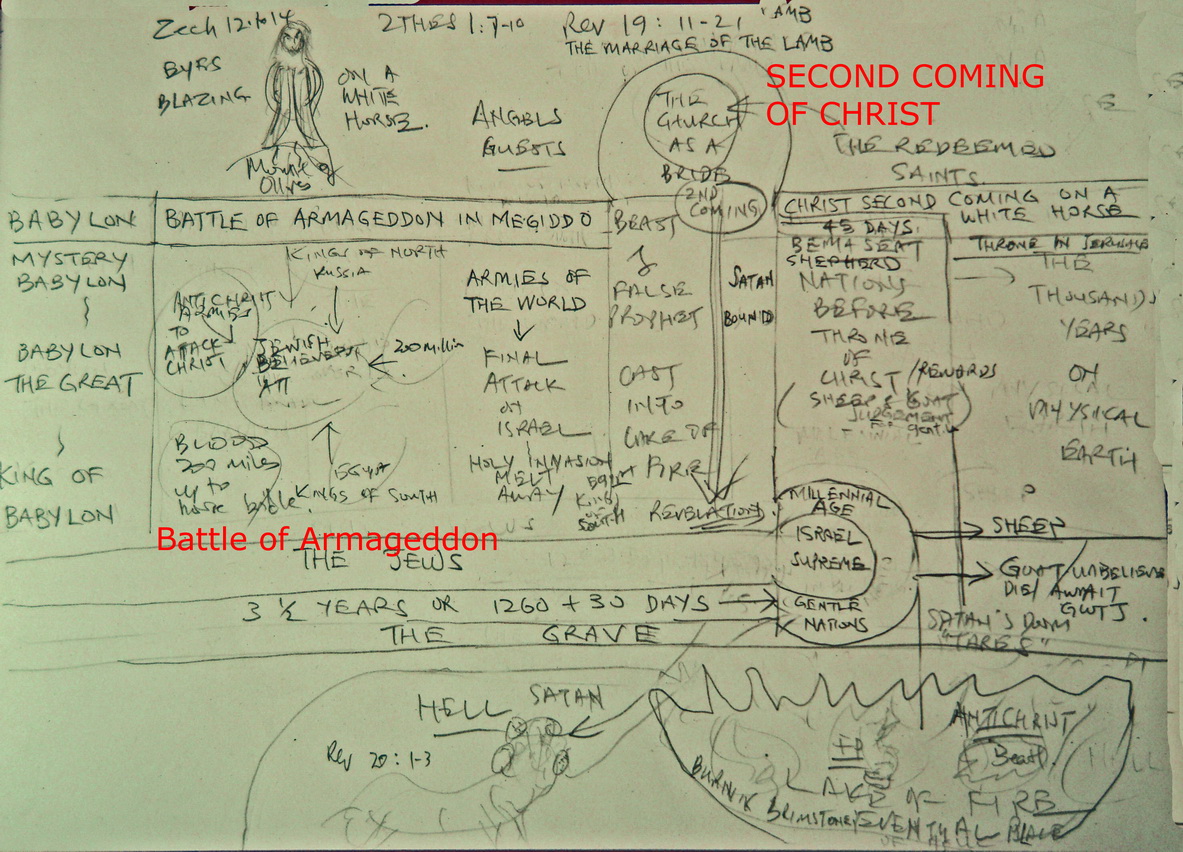 Zech 12:10, 14
2THES 1:7-10
Rev 19:11-21
LAMB
THE MARRIAGE OF THE LAMB
EYES
BLAZING
ON A
WHITE
HORSE.
Mount of
Olives
ANGELS
GUESTS
THE
CHURCH
AS A
BRIDE
SECOND COMING
OF CHRIST
THE REDEEMED
SAINTS
2ND
COMING
BABYLON
BATTLE OF ARMAGEDDON IN MEGIDDO
CHRIST SECOND COMING ON A
WHITE HORSE
MYSTERY
BABYLON
BABYLON
THE GREAT
KING OF
BABYLON
KINGS OF NORTH
RUSSIA
ANTICHRIST
ARMIES
TO
ATTACK
CHRIST
JEWISH
200 Million
BLOOD
200 miles
up to
horse bridle.
EGYPT
KINGS OF SOUTH
ARMIES OF
THE WORLD
FINAL
ATTACK
ON
ISRAEL
HOLY INVASION
MELT
AWAY
King
of
South
BEAST
&
FALSE
PROPHET
CAST
INTO
LAKE OF
FIRE
REVELATION
SATAN
BOUND
45 DAYS
BEMA SEAT
SHEPHERD
NATIONS
BEFORE
THRONE
OF
CHRIST / REWARDS
SHEEP & GOAT
JUDGEMENT
THRONE IN JERUSALEM
THE
THOUSANDS
YEARS
ON
PHYSICAL
EARTH
Battle of Armageddon
THE JEWS
3 ½ YEARS OR 1260 + 30 DAYS
THE GRAVE
MILLENNIAL
AGE
ISRAEL
SUPREME
GENTLE
NATIONS
SHEEP
GOAT / UNBELIEVE
DIE / AWAIT
GWTJ.
SATAN'S DOOM
"TARES"
HELL
SATAN
Rev 20:1-3
ANTICHRIST
Beast
FP
HELL
LAKE OF FIRE
BURNIN BRIMSTONE
EVENTUAL PLACE